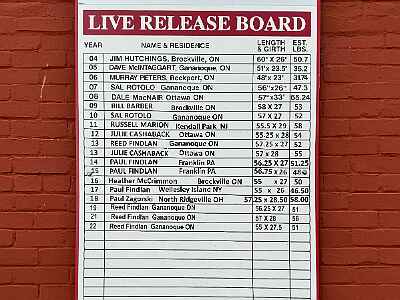 LIVE RELEASE BOARD
YEAR NAME & RESIDENCE LENGTH & GIRTH EST. LBS.
04 JIM HUTCHINGS, Brockville, ON 60" X 26" 50.7
05 DAVE McINTAGGART, Gananoque, ON 51"x 23.5" 35.2
06 MURRAY PETERS, Rockport, ON 48"x 23"
07 SAL ROTOLO Gananoque, ON 56"x26" 47.3
08 DALE MacNAIR Ottawa, ON 57"x33" 65.24
09 BILL BARBER Brockville ON 58 X 27 53
10 SAL ROTOLO Gananoque ON 57 X 27 52
11 RUSSELL MARION Kendall Park NJ 55.5 X 29 58
12 JULIE CASHABACK Ottawa ON 55.25 x 28 54
13 REED FINDLAN Gananoque ON 57.25 x 27 52
13 JULIE CASHABACK Ottawa ON 57 x 28 55
14 PAUL FINDLAN Franklin PA 56.25 X 27 51.25
15 PAUL FINDLAN Franklin PA 56.75 x 26 48
16 Heather McCrimmon Brockville ON 55 x 27 50
17 Paul Findlan Wellesley Island NY 55 x 26 46.50
18 Paul Zagorski North Ridgeville OH 57.25 x 28.50 58.00
19 Reed Findlan Gananoque ON 56.25 X 27 51
21 Reed Findlan Gananoque ON 57 X 28 56
22 Reed Findlan Gananoque ON 55 X 27.5 51